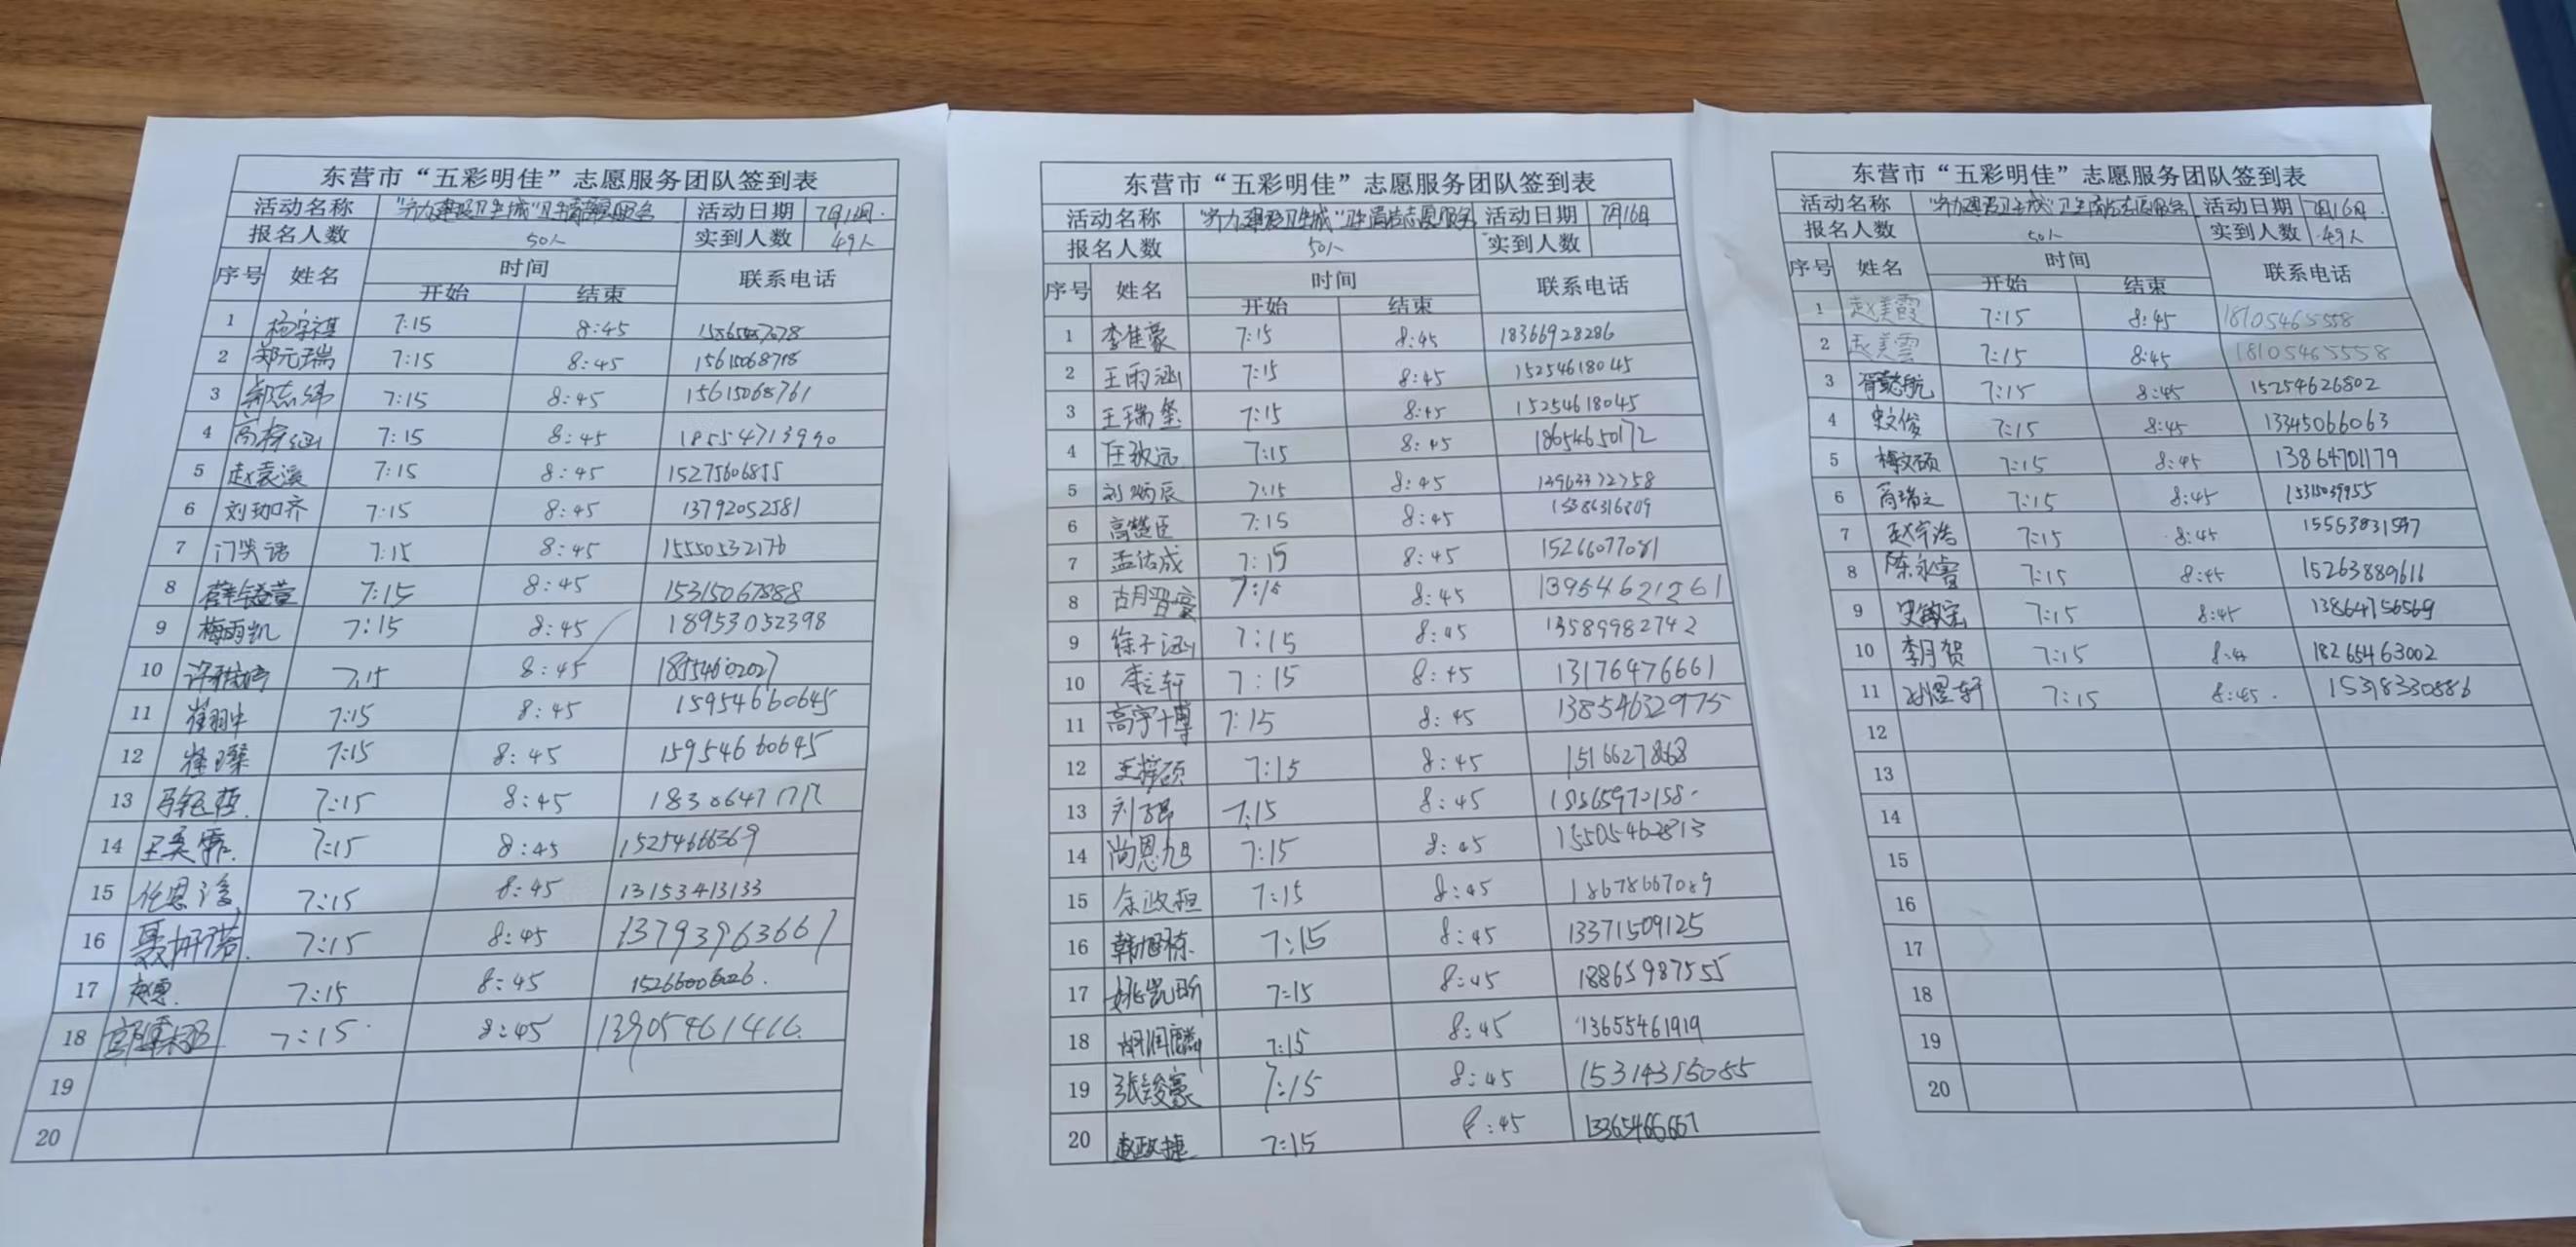 东营市“五彩明佳”志愿服务团队签到表
活动名称 活动日期
报名人数 50人 实到人数 49人
序号 姓名 时间 联系电话
开始 结束
1 杨宗祺 7:15 8:45
2 郑元瑞 7:15 8:45 15615068718
3 郑志纬 7:15 8:45 15615068761
4 高梓涵 7:15 8:45 18554713990
5 赵袁溪 7:15 8:45 15275606855
6 刘珈齐 7:15 8:45 13792052581
7 门笑语 7:15 8:45 15550532176
8 7:15 8:45 15315067888
9 梅雨凯 7:15 8:45 18953052398
10 7:15 8:45 18554602027
11 崔羽中 7:15 8:45 15954660645
12 崔璨 7:15 8:45 15954660645
13 7:15 8:45
14 7:15 8:45 15254666369
15 任恩 7:15 8:45 13153413133
16 聂妍诺 7:15 8:45 13793963667
17 7:15 8:45 15266006026
18 7:15 8:45 13905461466
19
20
东营市“五彩明佳”志愿服务团队签到表
活动名称 “齐力建设卫生城”卫生清洁志愿服务 活动日期 7月16日
报名人数 50人 实到人数
序号 姓名 时间 联系电话
开始 结束
1 李佳豪 7:15 8:45 18366928286
2 王雨涵 7:15 8:45 15254618045
3 王瑞玺 7:15 8:45 15254618045
4 任致远 7:15 8:45 18654650172
5 刘炳辰 7:15 8:45 13963372758
6 高楚臣 7:15 8:45
7 孟佑成 7:15 8:45 15266077081
8 胡晋豪 7:15 8:45 13954621261
9 徐子涵 7:15 8:45 13589982742
10 李立轩 7:15 8:45 13176476661
11 高宇博 7:15 8:45 13854632975
12 王梓硕 7:15 8:45 1516627868
13 刘 7:15 8:45
14 尚恩旭 7:15 8:45 15505462813
15 余政桓 7:15 8:45 18678667089
16 韩旭栋 7:15 8:45 13371509125
17 姚凯昕 7:15 8:45 18865987555
18 胡润麟 7:15 8:45 13655461919
19 张竣豪 7:15 8:45 15314315085
20 赵政捷 7:15 8:45 13365466667
东营市“五彩明佳”志愿服务团队签到表
活动名称 活动日期 7月16日
报名人数 50人 实到人数 49人
序号 姓名 时间 联系电话
开始 结束
1 赵美霞 7:15 8:45 18105465558
2 赵美雲 7:15 8:45 18105465558
3 胥懿航 7:15 8:45 15254626802
4 7:15 8:45 13345066063
5 梅文硕 7:15 8:45 13864701179
6 肖瑞之 7:15 8:45 15315039955
7 赵宇浩 7:15 8:45 15563831597
8 陈永睿 7:15 8:45 15263889611
9 7:15 8:45 13864756569
10 李月贺 7:15 18265463002
11 7:15 8:45 15318330886
12
13
14
15
16
17
18
19
20